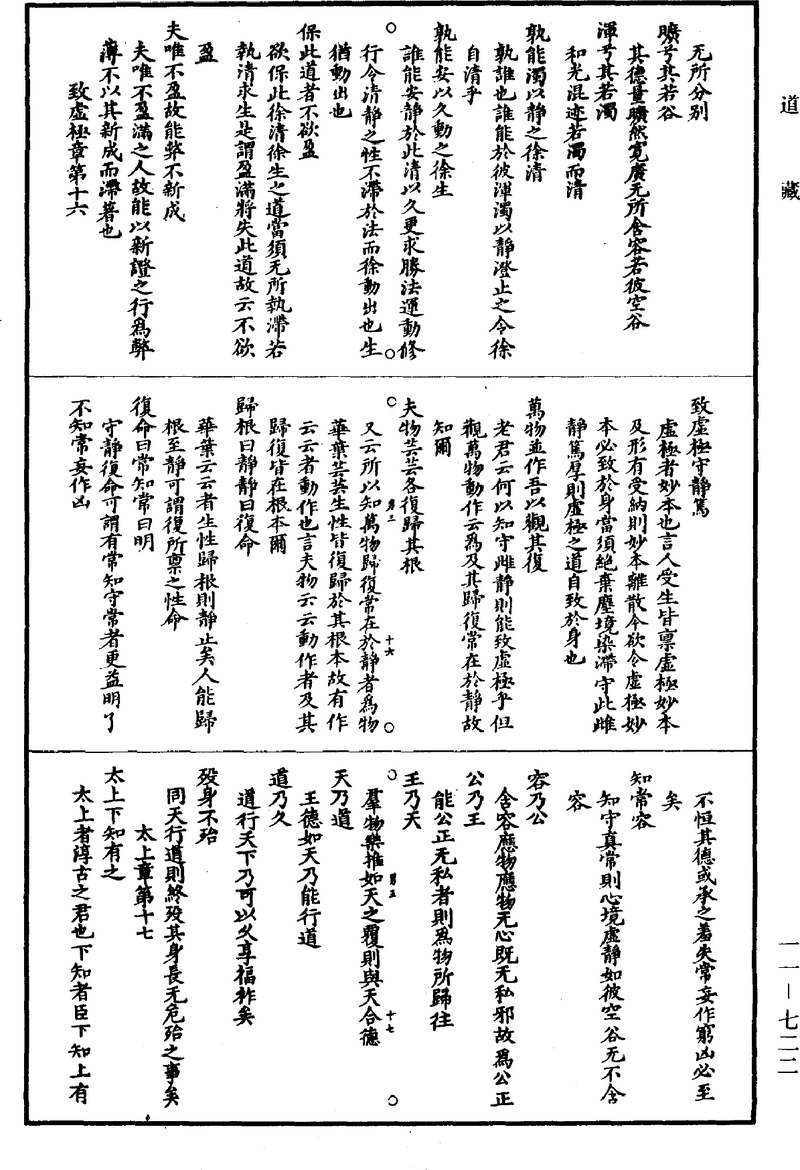 道藏
无所分别
曠兮其若谷
其德量曠然寬廣无所含容若彼空谷
渾兮其若濁
和光混迹若濁而清
孰能濁以靜之徐清
孰誰也誰能於彼渾濁以靜澄止之令徐
自清乎
孰能安以久動之徐生
誰能安靜於此清以久更求勝法運動修
行令清靜之性不滯於法而徐動出也生
猶動出也
保此道者不欲盈
欲保此徐清徐生之道當須无所執滯若
執清求生是謂盈滿將失此道故云不欲
盈
夫唯不盈故能弊不新成
夫唯不盈滿之人故能以新證之行為弊
薄不以其新成而滯著也
致虛極章第十六
致虛極守靜篤
虛極者妙本也言人受生皆稟虛極妙本
及形有受納則妙本離散今欲令虛極妙
本必致於身當須絕棄塵境染滯守此雌
靜篤厚則虛極之道自致於身也
萬物並作吾以觀其復
老君云何以知守雌靜則能致虛極乎但
觀萬物動作云為及其歸復常在於靜故
知爾
夫物芸芸各復歸其根
又云所以知萬物歸復常在於靜者為物
華葉芸芸生性皆復歸於其根本故有作
云云者動作也言夫物云云動作者及其
歸復皆在根本爾
歸根曰靜靜曰復命
華葉云云者生性歸根則靜止矣人能歸
根至靜可謂復所稟之性命
復命曰常知常曰明
守靜復命可謂有常知守常者更益明了
不知常妄作凶
不恒其德或承之羞失常妄作窮凶必至
矣
知常容
知守真常則心境虛靜如彼空谷无不含
容
容乃公
含容應物應物无心既无私邪故為公正
公乃王
能公正无私者則為物所歸往
王乃天
羣物樂推如天之覆則與天合德
天乃道
王德如天乃能行道
道乃久
道行天下乃可以久享福祚矣
殁身不殆
同天行道則終殁其身長无危殆之事矣
太上章第十七
太上下知有之
太上者淳古之君也下知者臣下知上有
一一－七二二